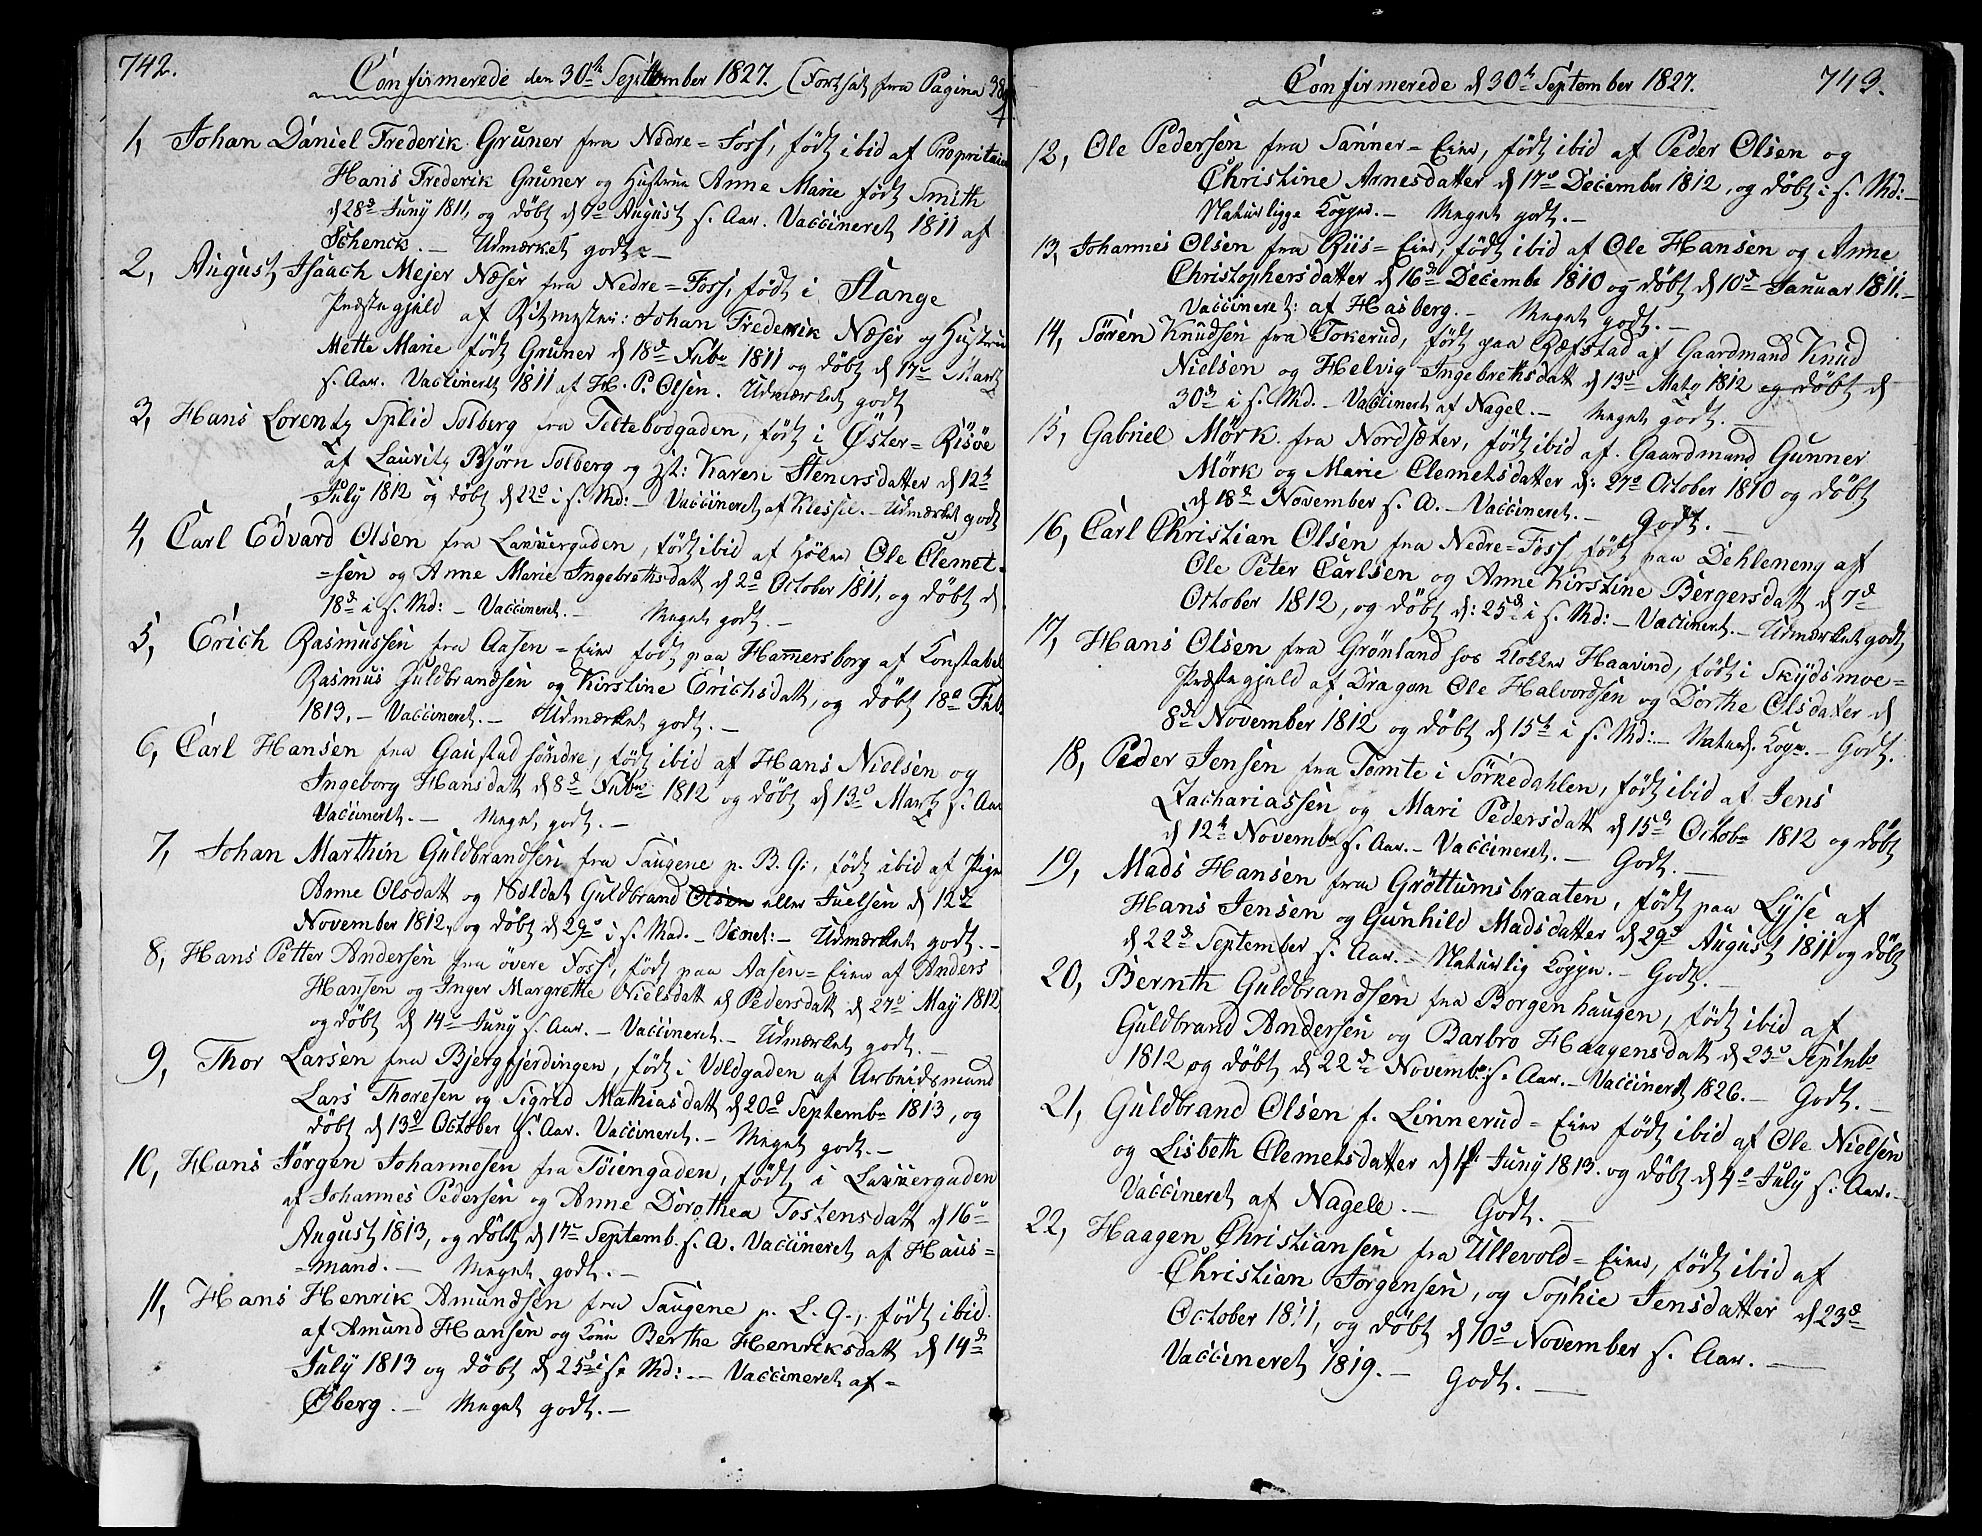 742.
Confirmerede den 30th September 1827. (Fortsat fra Pagina 38
1, Johan Daniel Frederik Gruner fra Nedre=Foss, født ibid af Proprietair
Hans Frederik Gruner og Hustrue Anne Marie født Smith
d 28de Juny 1811, og døbt d 7de August s. Aar. Vaccineret 1811 af
Schenck. — Udmærket godt. —
2, August Isaach Mejer Næser fra Nedre=Foss, født i Stange
Præstegjeld af Ritmester: Johan Frederik Næser og Hustrue
Mette Marie født Gruner d 18de Febr 1811 og døbt d 17de Martz
s. Aar. Vaccineret 1811 af H. P. Olsen. Udmærket godt
3, Hans Lorentz Split Solberg fra Teltebodgaden, født i Øster=Riisøe
af Lauritz Bjørn Solberg og Karen Stenersdatter d 12te
July 1812 og døbt d 22de i s. Md: — Vaccineret af Klessie. — Udmærket godt
4, Carl Edvard Olsen fra Lakkergaden, født ibid af Høker Ole Clemet-
=sen og Anne Marie Ingebrethsdatt d 2de October 1811, og døbt d.
18de i s. Md: — Vaccineret. — Meget godt. —
5, Erich Rasmussen fra Aasen=Eier født paa Hammersborg af Konstabel
Rasmus Guldbrandsen og Kirstine Erichsdatt, og døbt 18de Feb.
1813. — Vaccineret. — Udmærket godt. —
6, Carl Hansen fra Gaustad søndre, født ibid af Hans Nielsen og
Ingeborg Hansdatt d 8de Febr 1812 og døbt d 13de Martz s. Aar
Vaccineret. — Meget godt. —
7, Johan Marthin Guldbrandsen fra Saugene p. B. G:, født ibid af Pige
Anne Olsdatt og Soldat Guldbrand Olsen eller Juelsen d 12te
November 1812, og døbt d 29de i s. Md. — Vccnet: — Udmærket godt. —
8, Hans Petter Andersen fra øvere Foss, født paa Aasen=Eier af Anders
Hansen og Inger Margrethe Nielsdatt Pedersdatt d 27de May 1812
og døbt d 14de Juny s. Aar. — Vaccineret. — Udmærket godt. —
9, Thor Larsen fra Bjergfjerdingen, født i Voldgaden af Arbeidsmand
Lars Thoresen og Sigrid Mathiasdatt d 20de Septembr 1813, og
døbt d 13de October s. Aar. Vaccineret. — Meget godt. —
10, Hans Jørgen Johannesen fra Tøiengaden, født i Lakkergaden
af Johannes Pedersen og Anne Dorothea Tostensdatt d 16de
August 1813, og døbt d 17de Septemb. s. A. Vaccineret af Haus=
=mand. — Meget godt. —
11, Hans Henrik Amundsen fra Saugene p. L. G., født ibid.
af Amund Hansen og Kone Berthe Henriksdatt d 14de
July 1813 og døbt d 25de i s. Md: — Vaccineret af=
Øberg. — Meget godt. —
Confirmerede d 30te September 1827. 743.
12, Ole Pedersen fra Sanner=Eier, født ibid af Peder Olsen og
Christine Arnesdatter d 17de December 1812, og døbt i s. Md: —
Naturligge Kopper. — Meget godt. —
13, Johannes Olsen fra Riis=Eier, født ibid af Ole Hansen og Anne
Christophersdatter d 16de Decembr 1810 og døbt d 10de Januar 1811. —
Vaccineret: af Hasberg. — Meget godt. —
14, Søren Knudsen fra Tokerud, født paa Refstad af Gaardmand Knud
Nielsen og Helvig Ingebrethsdatt d 13de May 1812 og døbt d
30de i s. Md. — Vaccineret af Nagel. — Meget godt. —
15, Gabriel Mørk fra Nordsæter, født ibid af Gaardmand Gunner
Mørk og Marie Clemetsdatter d: 27de October 1810 og døbt
d 18de November s. A. — Vaccineret. — Godt. —
16, Carl Christian Olsen fra Nedre=Foss, født paa Dehleneng af
Ole Peter Carlsen og Anne Kirstine Bergersdatt d 7de
October 1812, og døbt d: 25de i s. Md: — Vaccineret. — Udmærket godt
17, Hans Olsen fra Grønland hos Klokker Haavind, født i Skydsmoe=
Præstegjeld af Dragon Ole Halvordsen og Dorthe Olsdatter d
8de November 1812 og døbt d 15te i s. Md: — Naturl. Kopr. — Godt.
18, Peder Jensen fra Tomte i Sørkedahlen, født ibid af Jens
Zachariassen og Mari Pedersdatt d 15de Octobr 1812 og døbt
d 12te Novembr s. Aar. — Vaccineret. — Godt. —
19, Mads Hansen fraa Grøttumsbraaten, født paa Lyse af
Hans Jensen og Gunhild Madsdatter d 29de August 1811 og døbt
d 22de September s. Aar. — Naturlig Kopper. — Godt. —
20, Bernth Guldbrandsen fra Borgenhaugen, født ibid af
Guldbrand Andersen og Barbro Haagensdatt d 23de Septebr
1812 og døbt d 22de Novembr: s. Aar. — Vaccineret 1826. — Godt. —
21, Guldbrand Olsen f. Linnerud=Eier født ibid af Ole Nielsen
og Lisbeth Clemetsdatter d 1ste Juny 1813. og døbt d 4de July s. Aar. —
Vaccineret af Nagele. — Godt. —
22, Haagen Christiansen fra Ullevold=Eier, født ibid af
Christian Jørgensen, og Sophie Jensdatter d 23de
October 1811, og døbt d 10de November s. Aar. —
Vaccineret 1819. — Godt. —